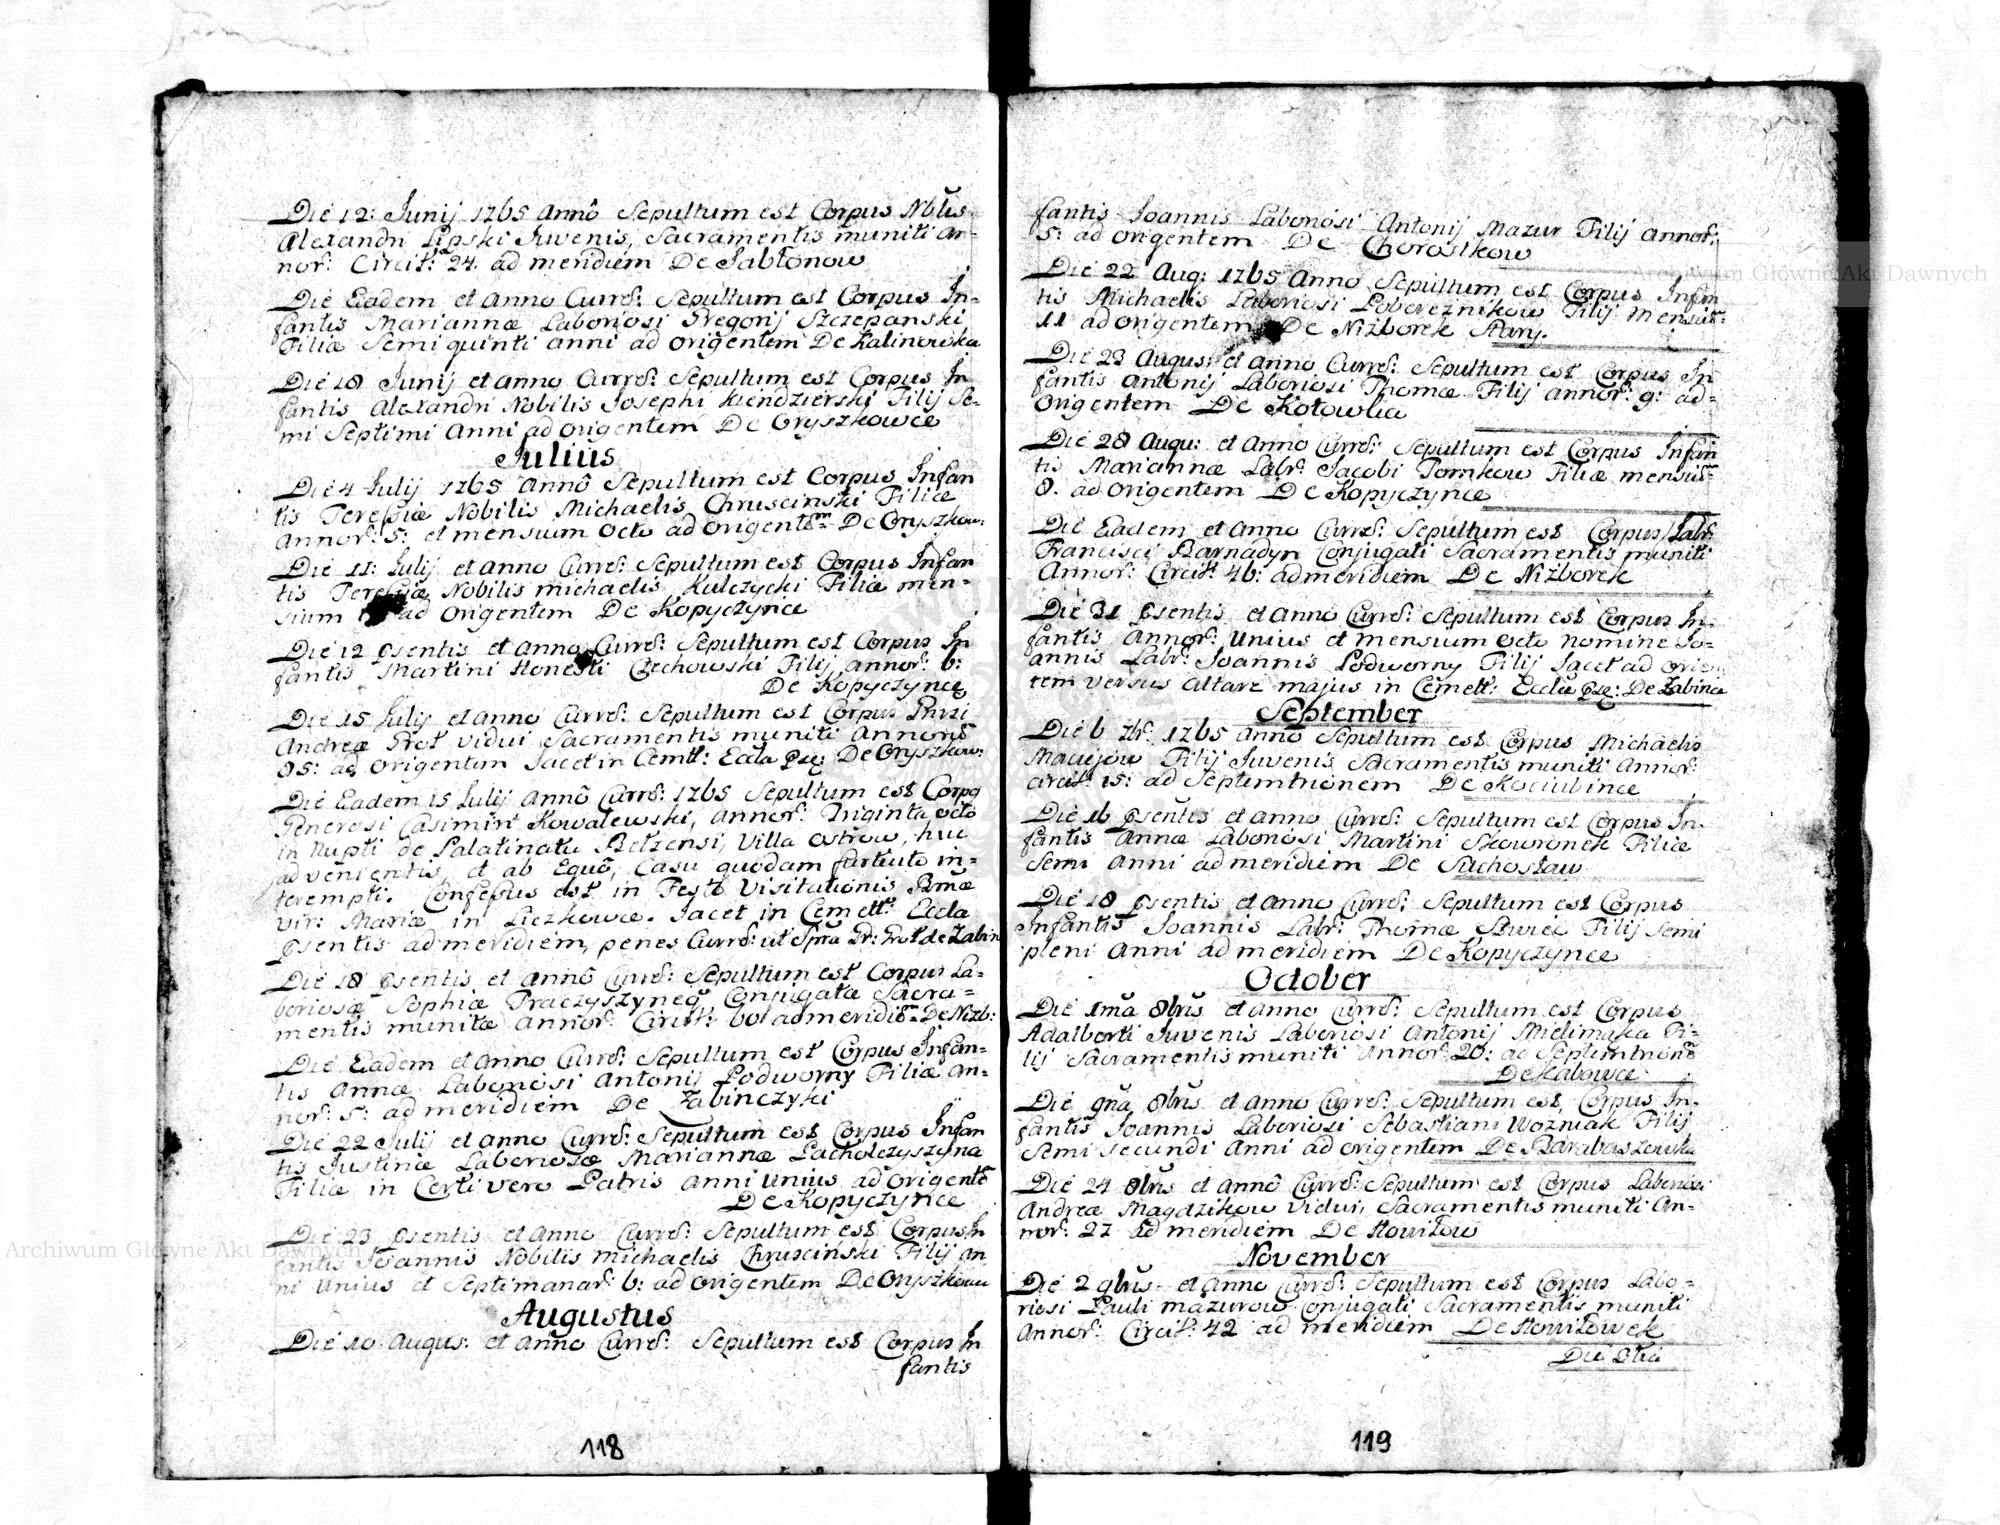 Die 12: Junij 1765 Annô Sepultum est Corpus Nblis
Alexandri Lipski Juvenis, Sacramentis muniti An-
nor: Circit: 24. ad meridiem De Jabłonow
Die Eadem et Anno Curre: Sepultum est Corpus In-
fantis Mariannæ Laboriosi Gregorij Szczepanski
Filiæ Semi quinti anni ad origentem De Kalinowka
Die 18 Junij et anno Curre: Sepultum est Corpus In
fantis Alexandri Nobilis Josephi Kiendzierski Filij Se-
mi Septimi Anni ad origentem De Oryszkowce
Julius
Die 4 Julij 1765 Annô Sepultum est Corpus Infan
tis Teressiæ Nobilis Michaelis Chruscinski Filiæ
Annor: 5: et mensium Octo ad origentem De Oryszkow:
Die 11: Julij et anno Curre: Sepultum est Corpus Infan
tis Teressiæ Nobilis michaelis Kulczycki Filiæ men-
sium ad origentem De Kopyczynce
Die 12 psentis et anno Curre: Sepultum est Corpus In
fantis Martini Honesti Czechowski Filij annor: 6:
De Kopyczynce
Die 15 Julij et anno Curre: Sepultum est Corpus
Andreæ Prot vidui Sacramentis muniti Annorũ
85: ad origentem Jacet in Cemtt: Eccla De Oryszkow:
Die Eadem 15 Julij Annô Curre: 1765 Sepultum est Corpq
Generosi Casimiri Kowalewski, annor: Triginta octo
in Nupti de Palatinatu Bełzensi, Villa Ostrow, huc
advenientis, et ab Equô, Casu quodam furtiuto in-
terempti. Confessus est in Festo Visitationis Bmæ
vir: Mariæ in Liczkowce. Jacet in Cemett: Eccla
psentis ad meridiem, penes Curre: ut Spra Dr: Prot de Zabin
Die 18 psentis et annô Curre: Sepultum est Corpus La-
boriosæ Sophiæ Traczyszyneo, Conjugatæ Sacra-
mentis munitæ Annor: Circit: 60: ad meridie De Nizb:
Die Eadem et anno Curre: Sepultum est Corpus Infan-
tis Annæ Laboriosi Antonij Podworny Filiæ An-
nor: 5: ad meridiem De Zabinczyki
Die 22 Julij et anno Curre: Sepultum est Corpus Infan
tis Justinæ Laboriosæ Mariannæ Pacholczyszyna
Filiæ in Certi vero Patris anni unius ad origentẽ
De Kopyczynce
Die 23 psentis et anno Curre: Sepultum est Corpus In
fantis Joannis Nobilis michaelis Chruscinski Filij an
ni unius et Septimanar: 6: ad origentem De Oryszkowce
Augustus
Die 10 Augus. et anno Curre: Sepultum est Corpus In
fantis
118
fantis Joannis Laboriosi Antonij Mazur Filij annor:
5: ad origentem De Chorostkow
Die 22 Aug: 1765 Anno Sepultum est Corpus Infan
tis Michaelis Laboriosi Pobereznikow Filij mensiũ:
11 ad origentem De Nizborek Stary.
Die 23 Augus: et anno Curre: Sepultum est Corpus In
fantis Antonij Laboriosi Thomæ Filij annor: 9: ad-
Origentem De Kotowka
Die 28 Augu: et Anno Curre: Sepultum est Corpus Infan
tis Mariannæ Labr: Jacobi Tomkow Filiæ mensiũ:
8. ad origentem De Kopyczynce
Die Eadem et Anno Curre: Sepultum est Corpus Labr:
Francisci Barnadyn Conjugati Sacramentis muniti
Annor: Circit: 46: ad meridiem De Nizborek
Die 31 psentis et anno Curre: Sepultum est Corpus In-
fantis Annor: unius et mensium octo nomine Jo-
annis Labr: Joannis Podworny Filij Jacet ad orien
tem versus altare majus in Cemett: Eccla De Zabince
September
Die 6 7br: 1765 Anno Sepultum est Corpus Michaelis
Maciejow Filij Juvenis Sacramentis muniti Annor:
circit: 15: ad Septemtrionem De Kociubince
Die 16 psentis et anno Curre: Sepultum est Corpus In-
fantis Annæ Laboriosi Martini Skowronek Filiæ
Semi Anni ad meridiem De Suchostaw
Die 18 psentis et anno Curre: Sepultum est Corpus
Infantis Joannis Labr: Thomæ Filij Semi
pleni Anni ad meridiem De Kopyczynce
October
Die 1mã 8bris et anno Curre: Sepultum est Corpus
Adalberti Juvenis Laboriosi Antonij Mielimaka Fi-
lij Sacramentis muniti Annor: 20: ad Septemtrionẽ
De Habowce
Die 9na 8bris et anno Curre: Sepultum est Corpus In-
fantis Joannis Laboriosi Sebastiani Wozniak Filij
Semi secundi Anni ad origentem De Barabaszowka
Die 24 8bris et annô Curre: Sepultum est Corpus Laboriosi
Andreæ Magdzikow Vidui, Sacramentis muniti An-
nor: 27 ad meridiem De Howitow
November
Die 2 9bris et anno Curre: Sepultum est Corpus Labo-
riosi Pauli mazurow Conjugati Sacramentis muniti
Annor: Circit: 42 ad meridiem De Howitowek
Die 8tia
119
Archiwum Główne Akt Dawnych
Archiwum Główne Akt Dawnych